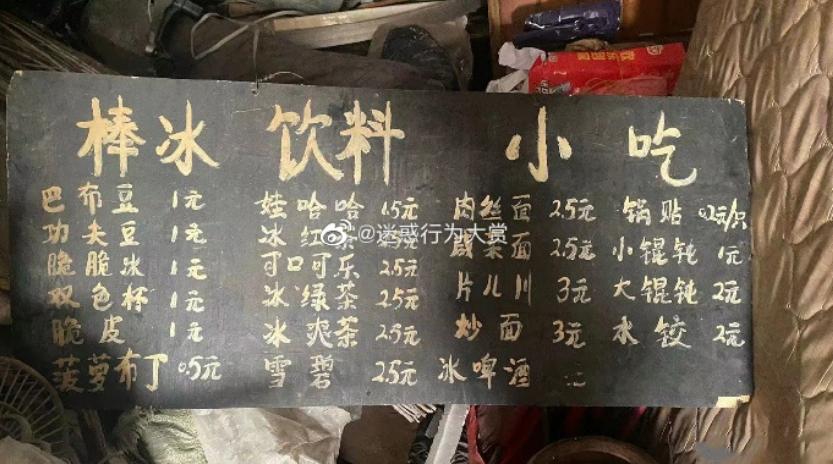 棒冰 饮料 小吃
巴布豆 1元 娃哈哈 1.5元 肉丝面 2.5元 锅贴 0.2元/只
功夫豆 1元 冰红茶 2.5元 咸菜面 2.5元 小馄饨 1元
脆脆冰 1元 可口可乐 2.5元 片儿川 3元 大馄饨 2元
双色杯 1元 冰绿茶 2.5元 炒面 3元 水饺 2元
脆皮 1元 冰爽茶 2.5元 冰啤酒
菠萝布丁 0.5元 雪碧 2.5元
@迷惑行为大赏